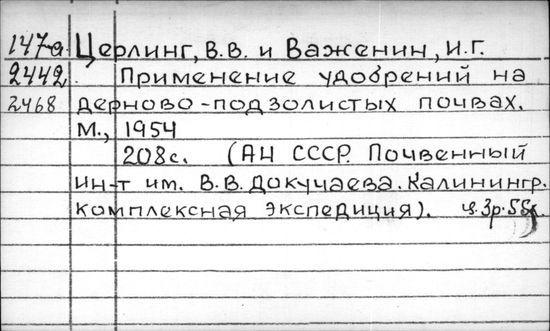 147а Церлинг, В.В. и Важенин, И.Г.
2442. Применение удобрений на
2468 дерново-подзолистых почвах.
М., 1954
208с. (АН СССР. Почвенный
ин-т им. В.В. Докучаева. Калинингр.
комплексная экспедиция). ц.3р.55